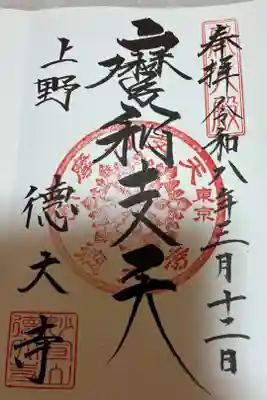 奉拝 令和八年三月十二日
摩利支天
上野 徳大寺
東京